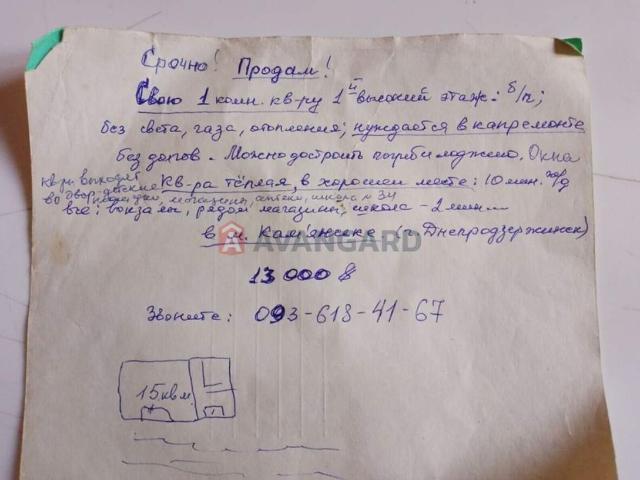 Срочно! Продам!
Свою 1 комн. кв-ру 1й высокий этаж: б/п;
без света, газа, отопления; нуждается в капремонте
без долгов. Можно достроить погреб и лоджию. Окна
кв-ры выходят
во двор- детские Кв-ра тёплая, в хорошем месте: 10 мин.
площадки, магазины, аптеки, школа № 34
вокзалы, рядом магазины, школа - 2 мин...
в м. Камянське (г. Днепродзержинск)
AVANGARD
13 000 $
Звоните: 093-618-41-67
15 кв м.